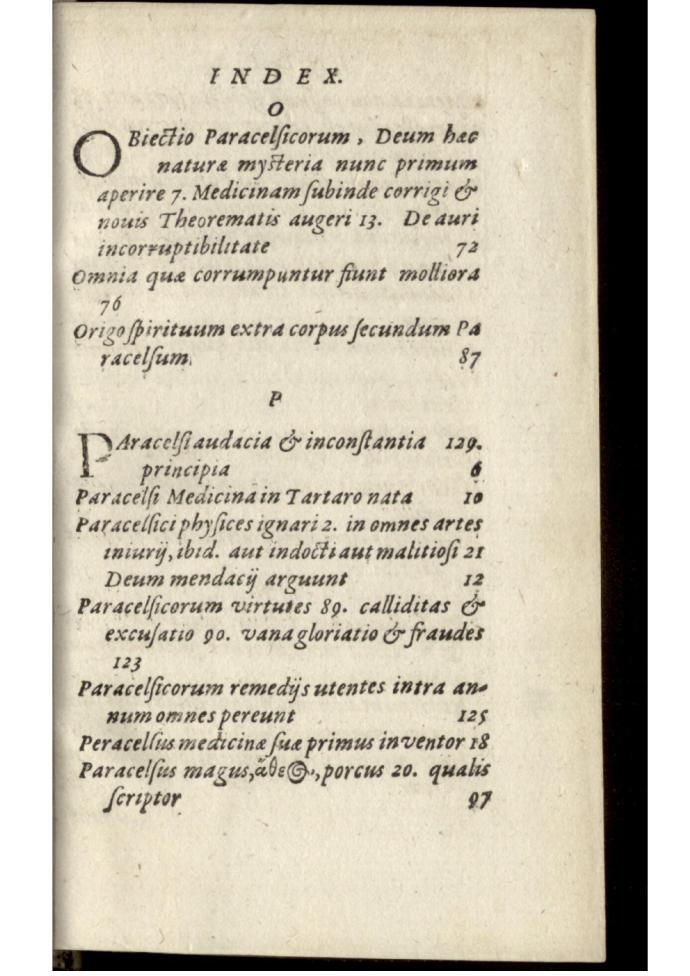 INDEX.
O
OBiectio Paracelsicorum, Deum hæc
naturæ mysteria nunc primum
aperire 7. Medicinam subinde corrigi &
nouis Theorematis augeri 13. De auri
incorruptibilitate 72
Omnia quæ corrumpuntur fiunt molliora
76
Origo spirituum extra corpus secundum Pa
racelsum. 87
P
PAracelsi audacia & inconstantia 129.
principia 6
Paracelsi Medicina in Tartaro nata 10
Paracelsici physices ignari 2. in omnes artes
iniurij, ibid. aut indocti aut malitiosi 21
Deum mendacij arguunt 12
Paracelsicorum virtutes 89. calliditas &
excusatio 90. vana gloriatio & fraudes
123
Paracelsicorum remedijs utentes intra an-
num omnes pereunt 125
Peracelsus medicinæ suæ primus inventor 18
Paracelsus magus, ἄθεος, porcus 20. qualis
scriptor 97